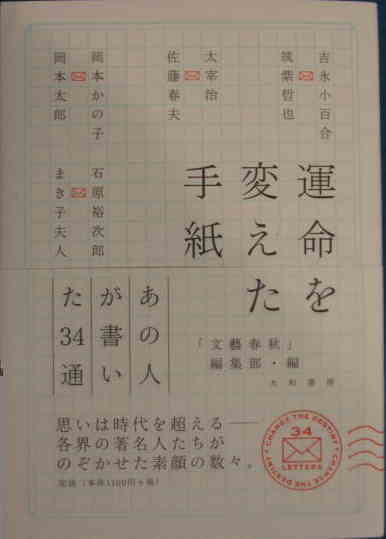 吉永小百合
筑紫哲也
太宰治
佐藤春夫
岡本かの子
岡本太郎
石原裕次郎
まき子夫人
運命を
変えた
手紙
あの人
が書い
た34通
「文藝春秋」
編集部・編
大和書房
思いは時代を超える──
各界の著名人たちが
のぞかせた素顔の数々。
定価(本体1100円+税)
CHANGE THE DESTINY
34
LETTERS
CHANGE THE DESTINY